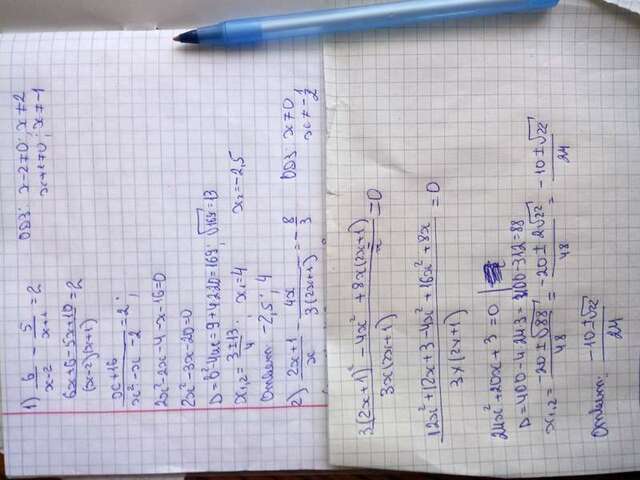 1) 6/(x-2) - 5/(x+1) = 2 ОДЗ: x-2≠0; x≠2
x+1≠0; x≠-1
(6x+6-5x+10)/((x-2)(x+1)) = 2
(x+16)/(x²-x-2) = 2;
2x²-2x-4-x-16=0
2x²-3x-20=0
x₁,₂ = (3±13)/4; x₁=4 x₂=-2,5
Ответ: -2,5; 4
2) (2x+1)/x - 4x/(3(2x+1)) = -8/3 ОДЗ: x≠0
(3(2x+1)² - 4x² + 8x(2x+1))/(3x(2x+1)) = 0
(12x²+12x+3-4x²+16x²+8x)/(3x(2x+1)) = 0
24x²+20x+3=0
x₁,₂ = (-20±√88)/48 = (-20±2√22)/48 = (-10±√22)/24
Ответ: (-10±√22)/24